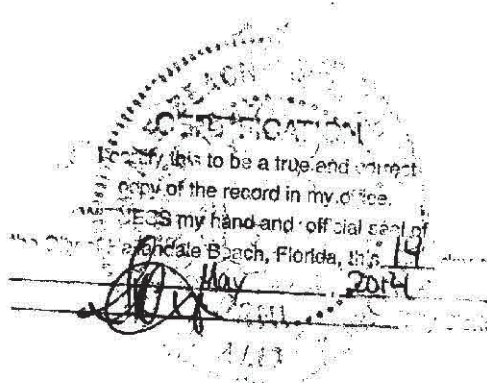 BEACH
CERTIFICATION
I certify this to be a true and correct
copy of the record in my office.
WITNESS my hand and official seal of
the City of Hallandale Beach, Florida, this 14
May 2014